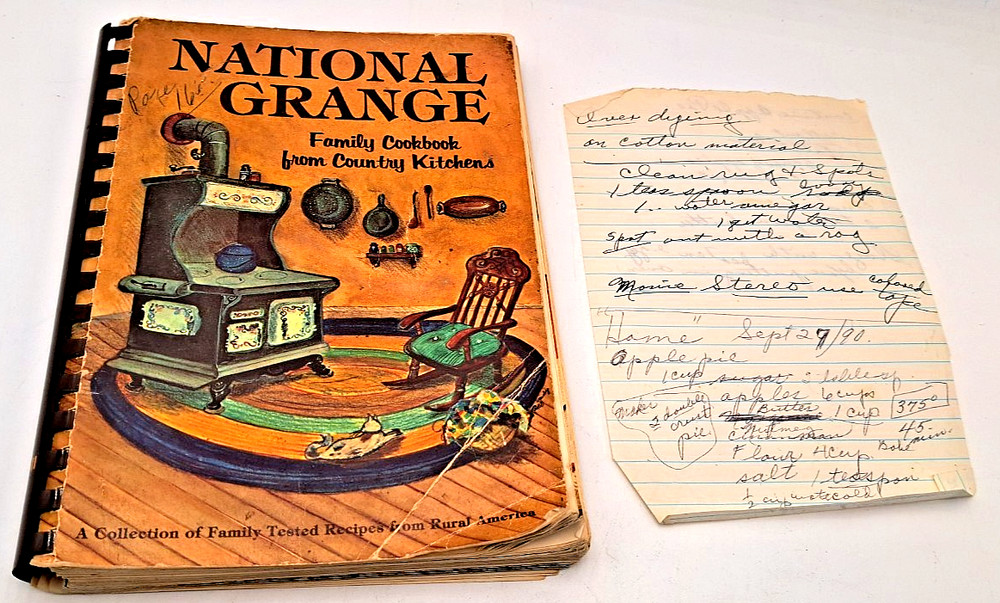 NATIONAL
GRANGE
Page 160
Family Cookbook
from Country Kitchens
A Collection of Family Tested Recipes from Rural America
on cotton material
clean rug & Spots
1 teas spoon
1
1 qt water
spot out with a rag
Stereo use
tape
"Home" Sept 27/90.
apple pie
1 cup sugar 2 tablesp.
apples 6 cups
Makes
2 double
crust
pie
Butter 1 cup
375°
Nutmeg
45
Cinnamon
Bake min.
Flour 4 cup
salt 1 teaspon
1/2 cup water cold